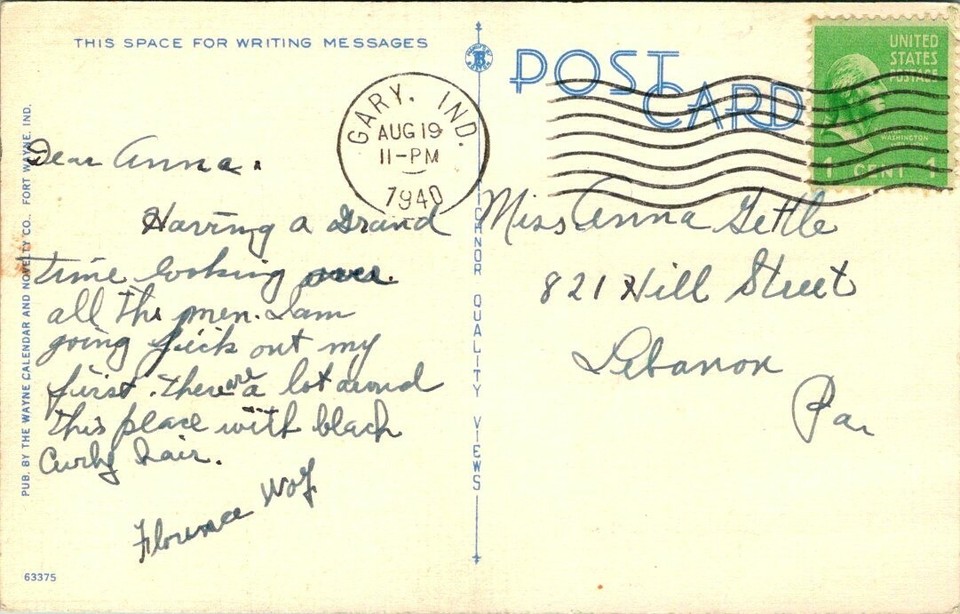 THIS SPACE FOR WRITING MESSAGES
PUB. BY THE WAYNE CALENDAR AND NOVELTY CO., FORT WAYNE, IND.
Dear Anna.
Having a Grand
time looking over
all the men. I am
going pick out my
first. there are a lot around
this place with black
Curly hair.
Florence Wolf
63375
TICHNOR QUALITY VIEWS
POST CARD
GARY, IND.
AUG 19
11-PM
1940
UNITED
STATES
POSTAGE
WASHINGTON
1 CENT 1
Miss Anna Gettle
821 Hill Street
Lebanon
Pa.